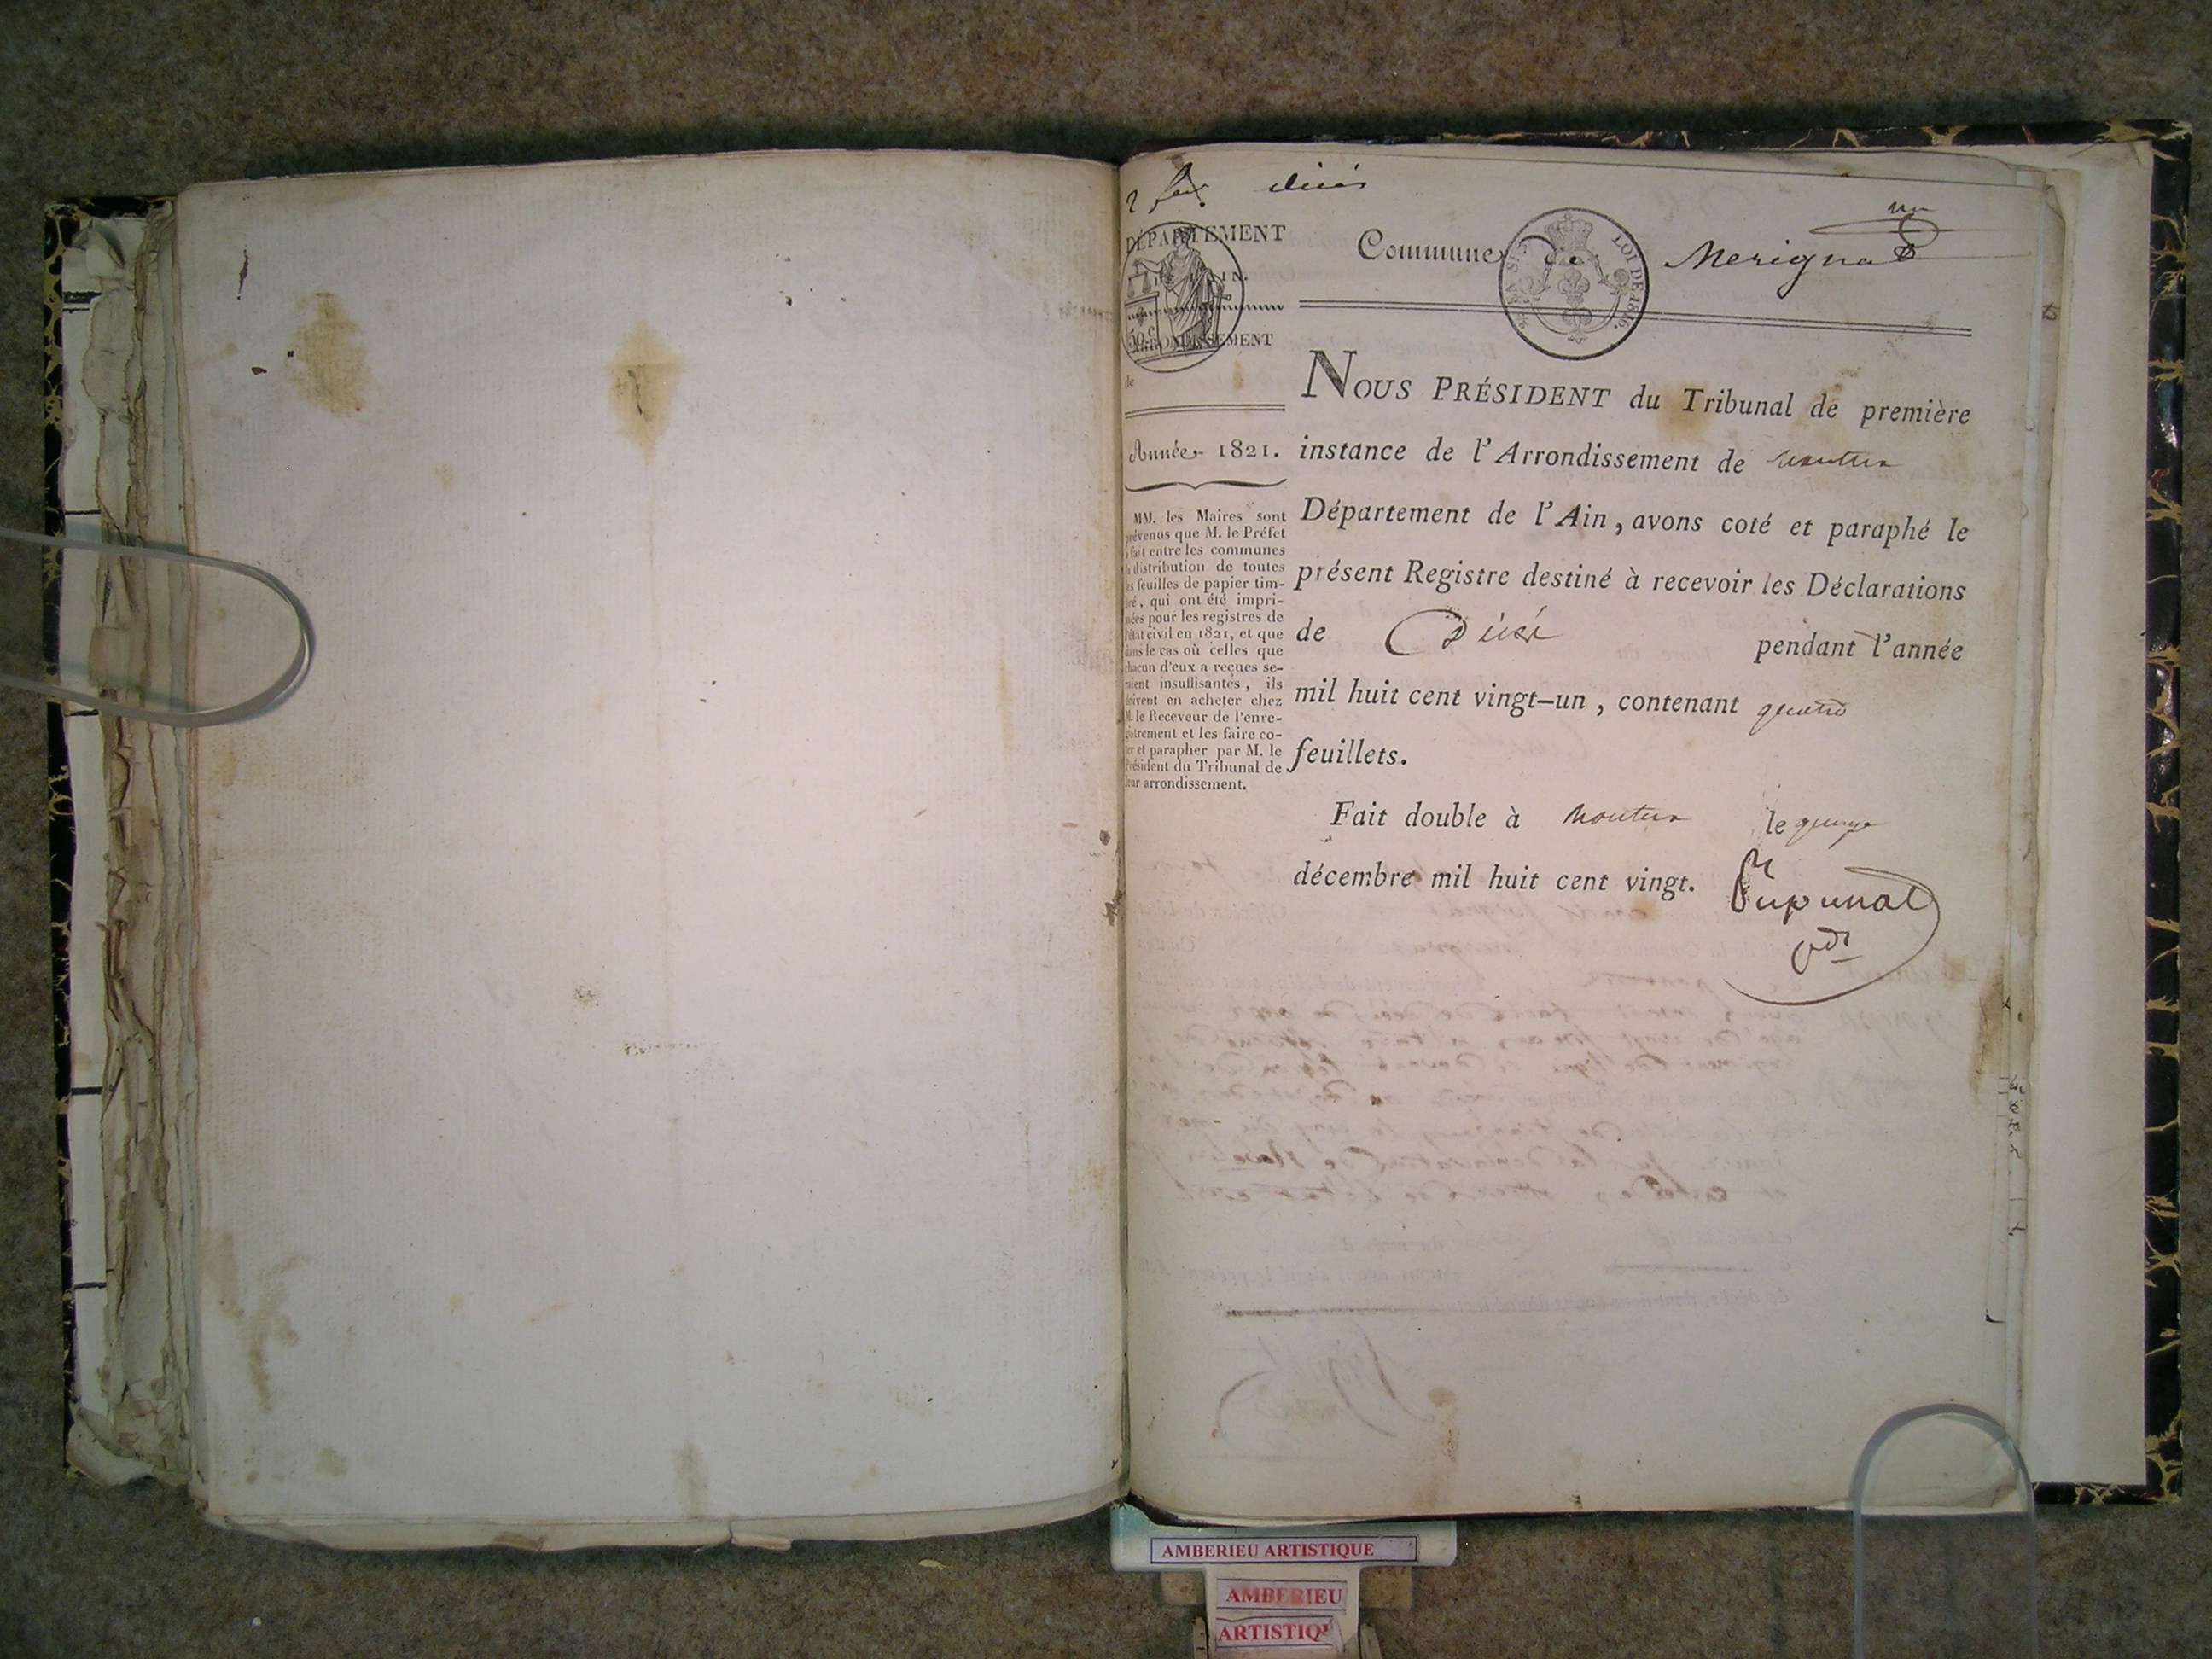 2 décés
un
DÉPARTEMENT
DE L'AIN.
50 c
ARRONDISSEMENT
de
Commune de Merignat
LOI DE 1816.
Année 1821.
MM. les Maires sont
prévenus que M. le Préfet
a fait entre les communes
la distribution de toutes
les feuilles de papier tim-
bré, qui ont été impri-
mées pour les registres de
l'état civil en 1821, et que
dans le cas où celles que
chacun d'eux a reçues se-
roient insuffisantes, ils
doivent en acheter chez
M. le Receveur de l'enre-
gistrement et les faire co-
ter et parapher par M. le
Président du Tribunal de
leur arrondissement.
NOUS PRÉSIDENT du Tribunal de première
instance de l'Arrondissement de nantua
Département de l'Ain, avons coté et paraphé le
présent Registre destiné à recevoir les Déclarations
de Décés pendant l'année
mil huit cent vingt-un, contenant quatre
feuillets.
Fait double à nantua le quinze
décembre mil huit cent vingt.
AMBERIEU ARTISTIQUE
AMBERIEU
ARTISTIQU